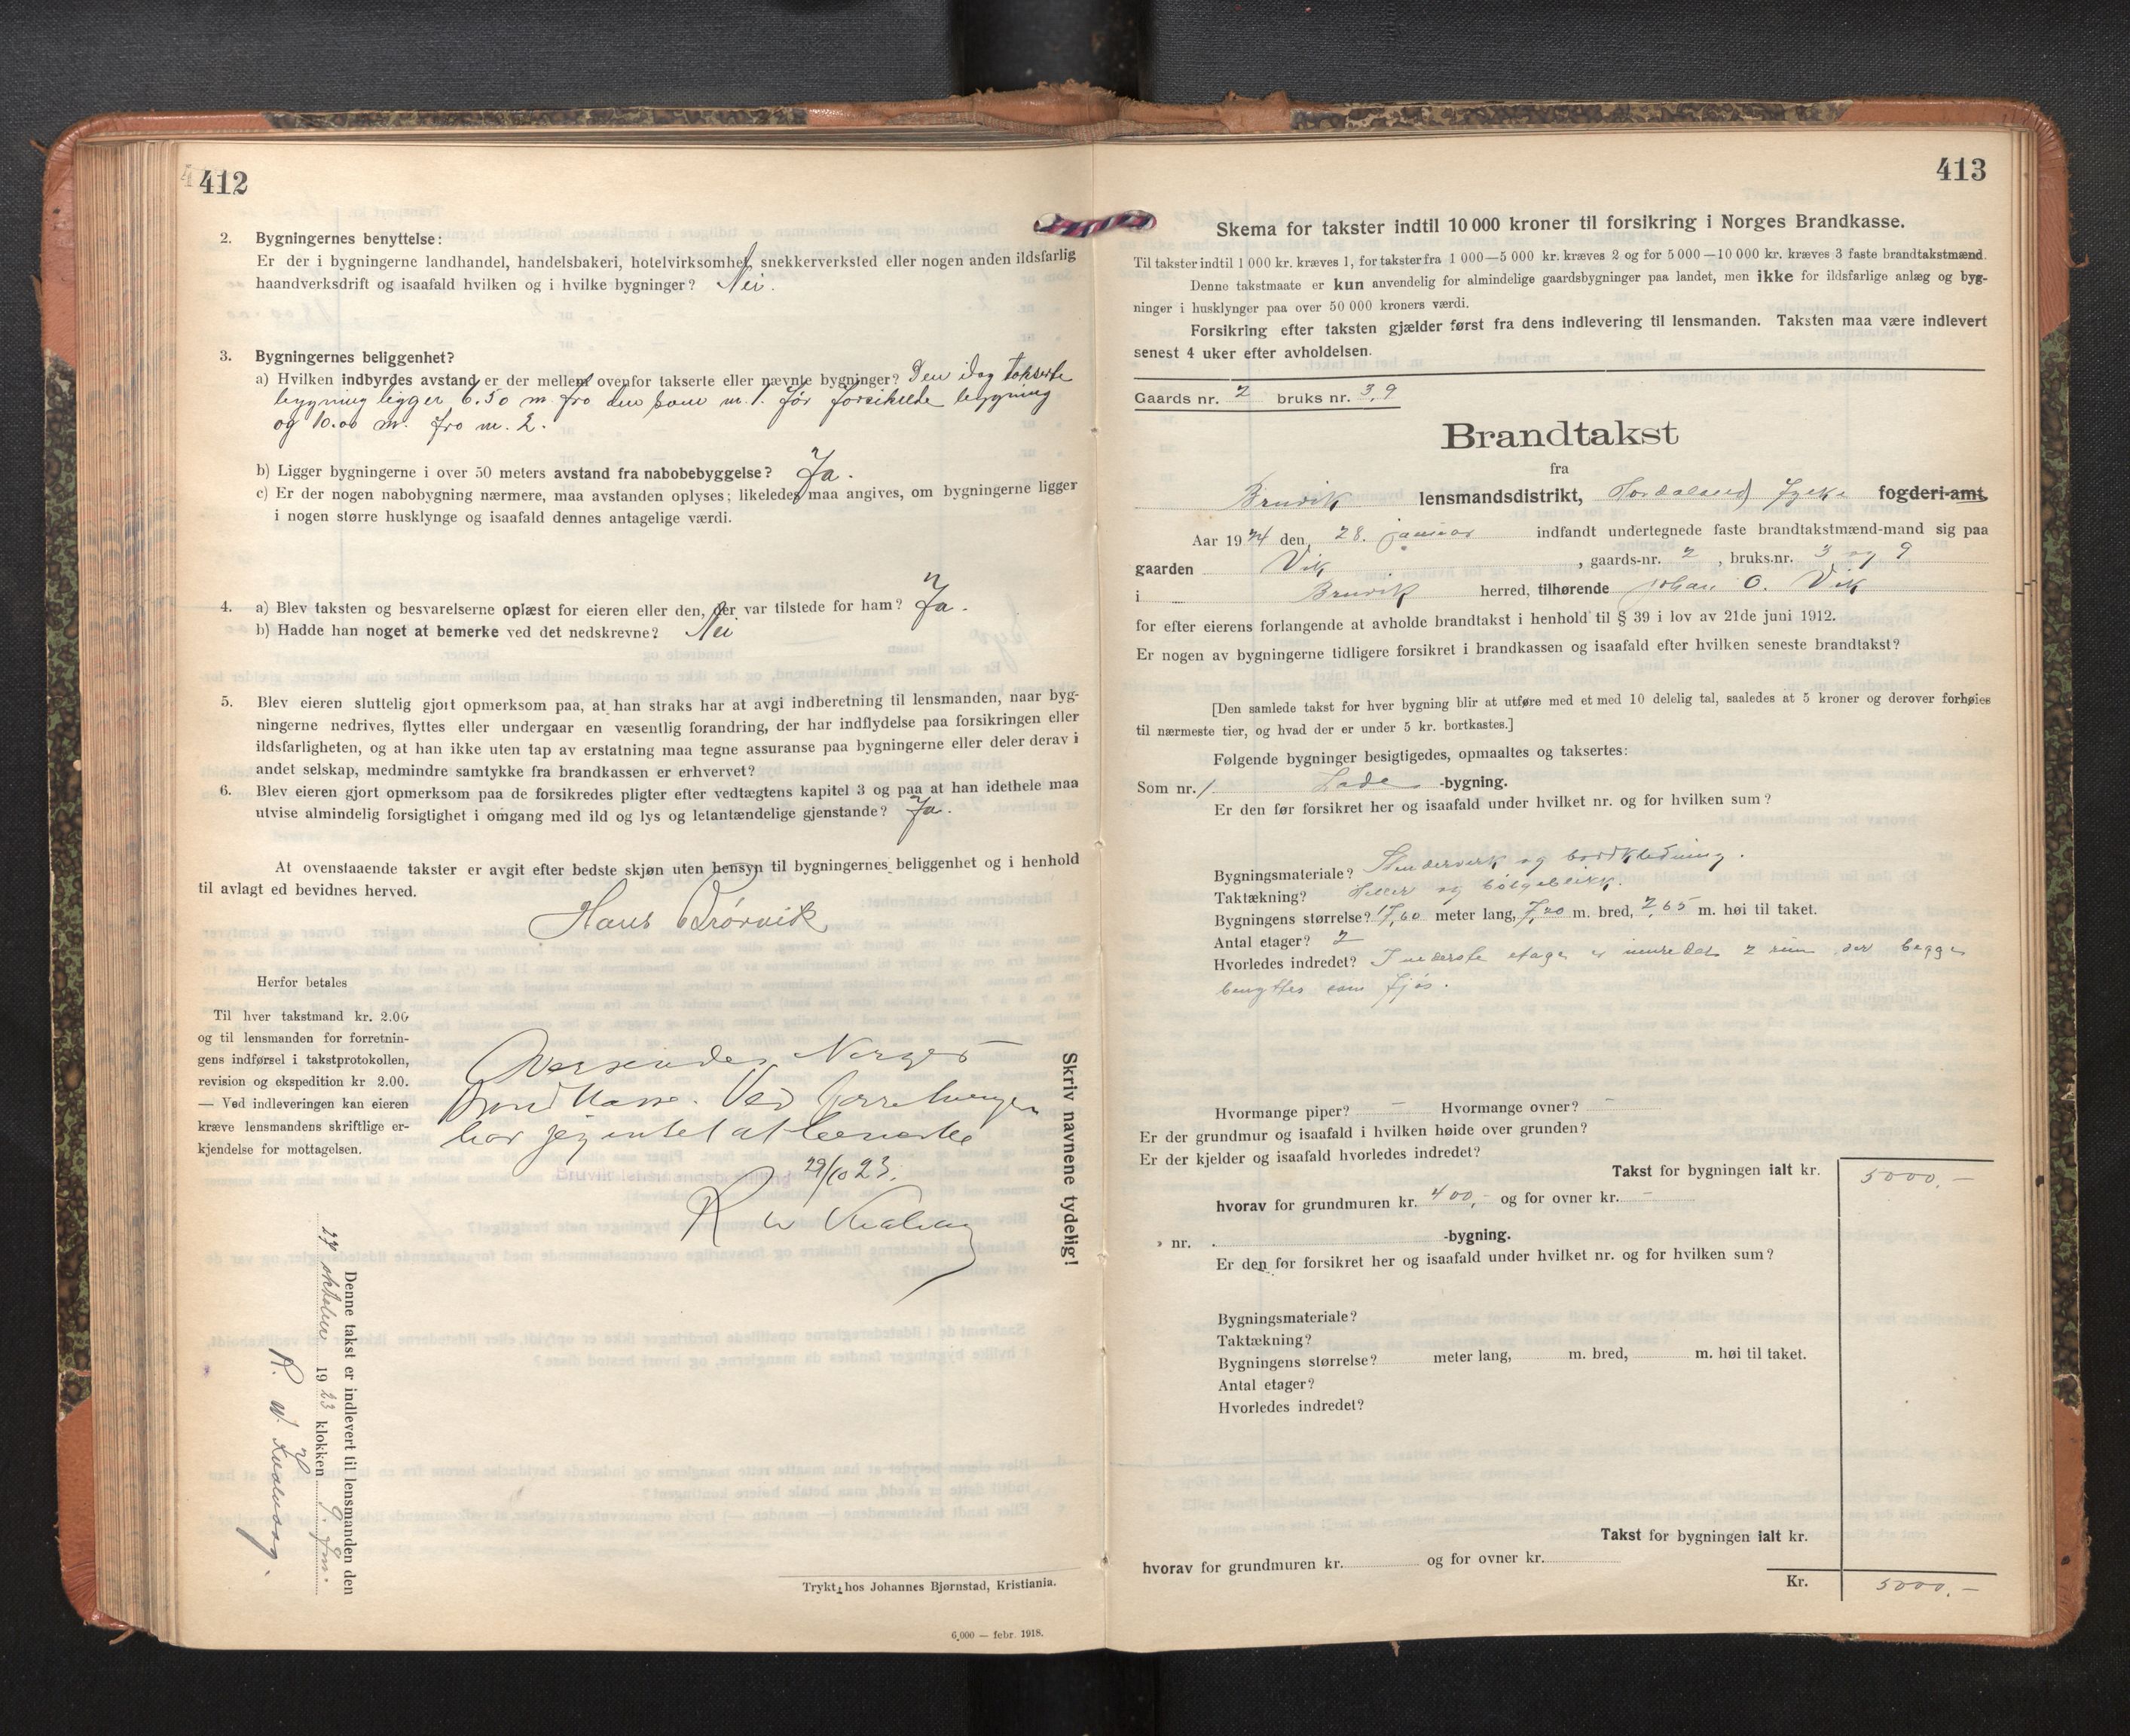 412
2. Bygningernes benyttelse:
Er der i bygningerne landhandel, handelsbakeri, hotelvirksomhet, snekkerverksted eller nogen anden ildsfarlig
haandverksdrift og isaafald hvilken og i hvilke bygninger? Nei.
3. Bygningernes beliggenhet?
a) Hvilken indbyrdes avstand er der mellem ovenfor takserte eller nævnte bygninger? Den idag takserte
bygning ligger 6.50 m. fra den som nr. 1. før forsikrede bygning
og 10.00 m. fra nr. 2.
b) Ligger bygningerne i over 50 meters avstand fra nabobebyggelse? Ja.
c) Er der nogen nabobygning nærmere, maa avstanden oplyses; likeledes maa angives, om bygningerne ligger
i nogen større husklynge og isaafald dennes antagelige værdi.
4. a) Blev taksten og besvarelserne oplæst for eieren eller den, der var tilstede for ham? Ja.
b) Hadde han noget at bemerke ved det nedskrevne? Nei
5. Blev eieren sluttelig gjort opmerksom paa, at han straks har at avgi indberetning til lensmanden, naar byg-
ningerne nedrives, flyttes eller undergaar en væsentlig forandring, der har indflydelse paa forsikringen eller
ildsfarligheten, og at han ikke uten tap av erstatning maa tegne assuranse paa bygningerne eller deler derav i
andet selskap, medmindre samtykke fra brandkassen er erhvervet?
6. Blev eieren gjort opmerksom paa de forsikredes pligter efter vedtægtens kapitel 3 og paa at han idethele maa
utvise almindelig forsigtighet i omgang med ild og lys og letantændelige gjenstande? Ja.
At ovenstaaende takster er avgit efter bedste skjøn uten hensyn til bygningernes beliggenhet og i henhold
til avlagt ed bevidnes herved.
Hans Rørvik
Herfor betales
Til hver takstmand kr. 2.00
og til lensmanden for forretnin-
gens indførsel i takstprotokollen,
revision og ekspedition kr 2.00.
— Ved indleveringen kan eieren
kræve lensmandens skriftlige er-
kjendelse for mottagelsen.
Oversendes Norges
Brandkasse. Ved forretningen
har jeg intet at bemerke
Bruvik lensmandsbestilling 29/10 23.
R W Kvalvaag
Skriv navnene tydelig!
Denne takst er indlevert til lensmanden den
27 oktober 1923 klokken 9 fm.
R. W. Kvalvaag.
Trykt hos Johannes Bjørnstad, Kristiania.
6,000 — febr. 1918.
413
Skema for takster indtil 10 000 kroner til forsikring i Norges Brandkasse.
Til takster indtil 1 000 kr. kræves 1, for takster fra 1 000—5 000 kr. kræves 2 og for 5 000—10 000 kr. kræves 3 faste brandtakstmænd.
Denne takstmaate er kun anvendelig for almindelige gaardsbygninger paa landet, men ikke for ildsfarlige anlæg og byg-
ninger i husklynger paa over 50 000 kroners værdi.
Forsikring efter taksten gjælder først fra dens indlevering til lensmanden. Taksten maa være indlevert
senest 4 uker efter avholdelsen.
Gaards nr. 2 bruks nr. 3,9
Brandtakst
fra
Bruvik lensmandsdistrikt, Hordaland Fylke fogderi-amt.
Aar 1924 den 28. januar indfandt undertegnede faste brandtakstmænd-mand sig paa
gaarden Vik, gaards-nr. 2, bruks.nr. 3 og 9
i Bruvik herred, tilhørende Johan O. Vik
for efter eierens forlangende at avholde brandtakst i henhold til § 39 i lov av 21de juni 1912.
Er nogen av bygningerne tidligere forsikret i brandkassen og isaafald efter hvilken seneste brandtakst?
[Den samlede takst for hver bygning blir at utføre med et med 10 delelig tal, saaledes at 5 kroner og derover forhøies
til nærmeste tier, og hvad der er under 5 kr. bortkastes.]
Følgende bygninger besigtigedes, opmaaltes og taksertes:
Som nr. 1 Lade -bygning.
Er den før forsikret her og isaafald under hvilket nr. og for hvilken sum?
Bygningsmateriale? Stenderverk og bordklædning.
Taktækning? Heller og bølgeblikk.
Bygningens størrelse? 17,60 meter lang, 7,20 m. bred, 2,65 m. høi til taket.
Antal etager? 2
Hvorledes indredet? I nederste etage er innredet 2 rum der begge
benyttes som fjøs.
Hvormange piper? — Hvormange ovner? —
Er der grundmur og isaafald i hvilken høide over grunden?
Er der kjelder og isaafald hvorledes indredet?
Takst for bygningen ialt kr. 5000.-
hvorav for grundmuren kr. 400,- og for ovner kr. -
» nr. -bygning.
Er den før forsikret her og isaafald under hvilket nr. og for hvilken sum?
Bygningsmateriale?
Taktækning?
Bygningens størrelse? meter lang, m. bred, m. høi til taket.
Antal etager?
Hvorledes indredet?
Takst for bygningen ialt kr.
hvorav for grundmuren kr. og for ovner kr.
Kr. 5000.-